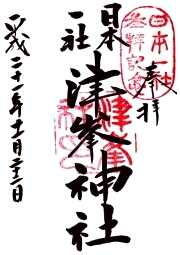 奉拝
日本一社
津峯神社
平成二十一年十一月二十二日
日本一社
参拝記念
津峯